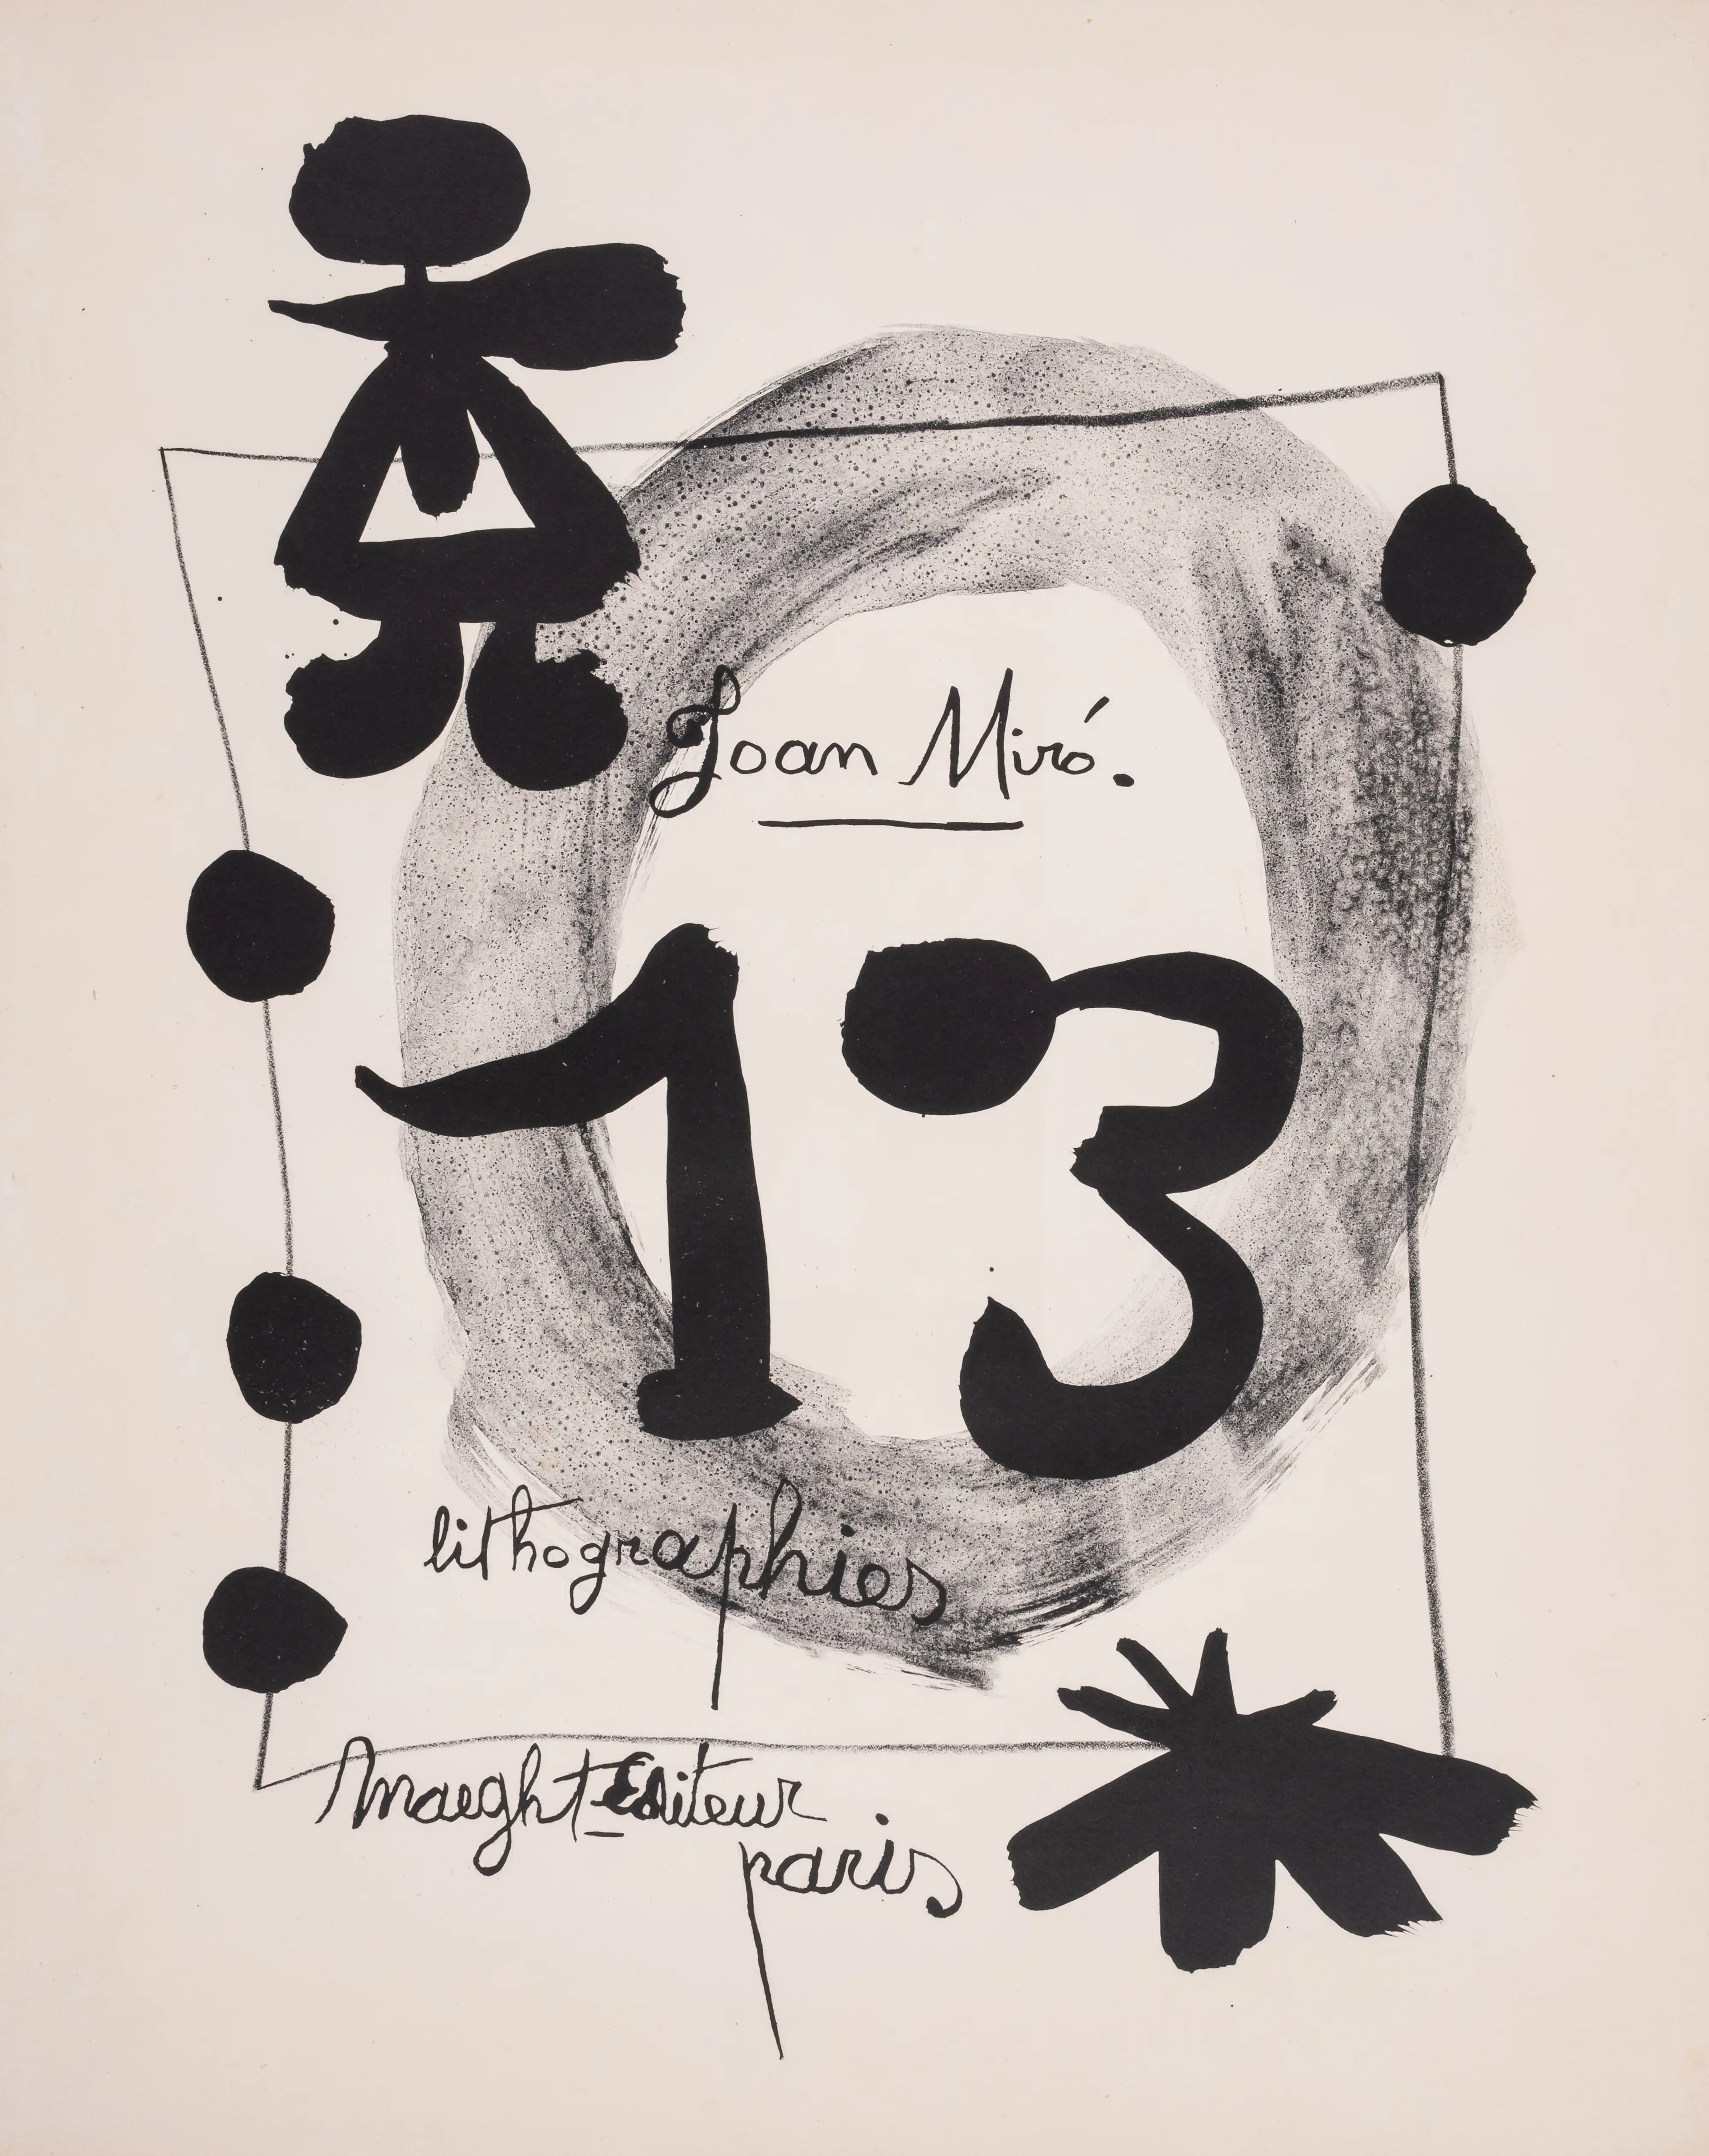 Joan Miró.
13
lithographies
Maeght-Editeur
paris